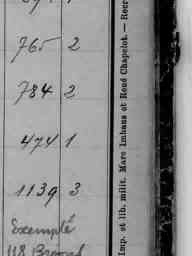 765 2
784 2
474 1
1139 3
Exempté
Imp. et lib. milit. Marc Imhaus et René Chapelot. — Recr